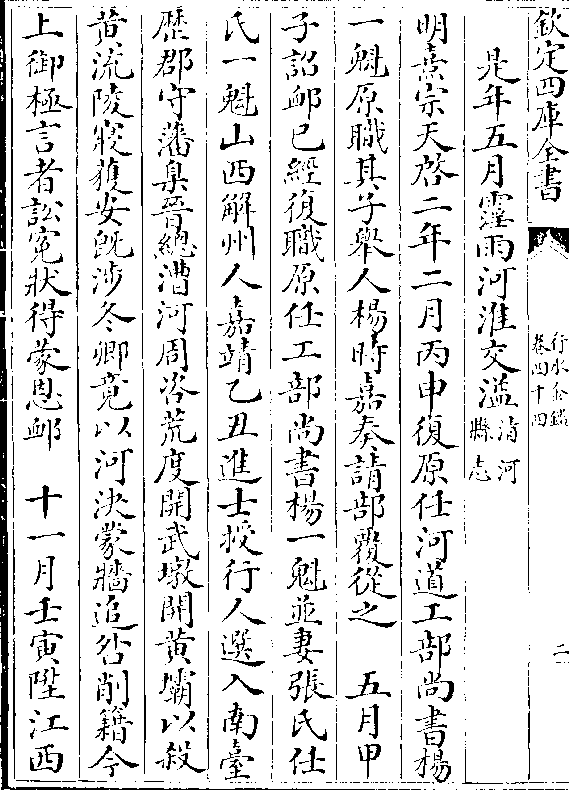 欽定四庫全書
行水金鑑
卷四十四
二
是年五月霪雨河淮交溢清河
縣志
明熹宗天啓二年二月丙申復原任河道工部尚書楊
一魁原職其子舉人楊時嘉奏請部覆從之　五月甲
子詔䘏已經復職原任工部尚書楊一魁並妻張氏仕
氏一魁山西解州人嘉靖乙丑進士授行人選入南臺
歷郡守藩臬晉總漕河周咨荒度開武墩開黃壩以殺
黃流陵寢獲安旣涉冬卿竟以河決蒙牆追咎削籍今
上御極言者訟寃狀得蒙恩䘏　十一月壬寅陞江西